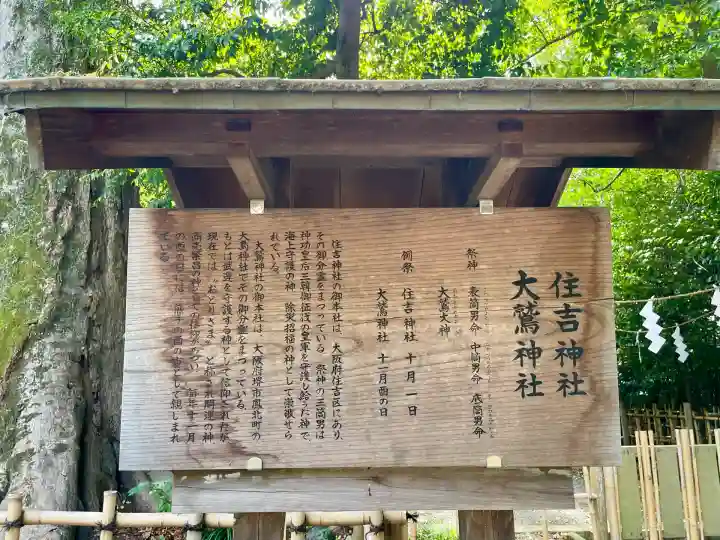 住吉神社
大鷲神社
祭神 表筒男命 中筒男命 底筒男命
大鷲大神
例祭 住吉神社 十月一日
大鷲神社 十一月酉の日
住吉神社の御本社は、大阪府住吉区にあり、
その御分霊をまつっている。祭神の三筒男は
神功皇后三韓御征伐の皇軍を守護し給うた神で、
海上守護の神 除災招福の神として崇敬せら
れている。
大鷲神社の御本社は、大阪府堺市鳳北町の
大鳥神社でその御分霊をまつっている。
もとは武運を守護する神として信仰されたが
現在では「おとりさま」と称され開運の神、
商売繁昌の神として信仰され 毎年十一月
の酉の日には 熊手の酉の市として親しまれ
ている。